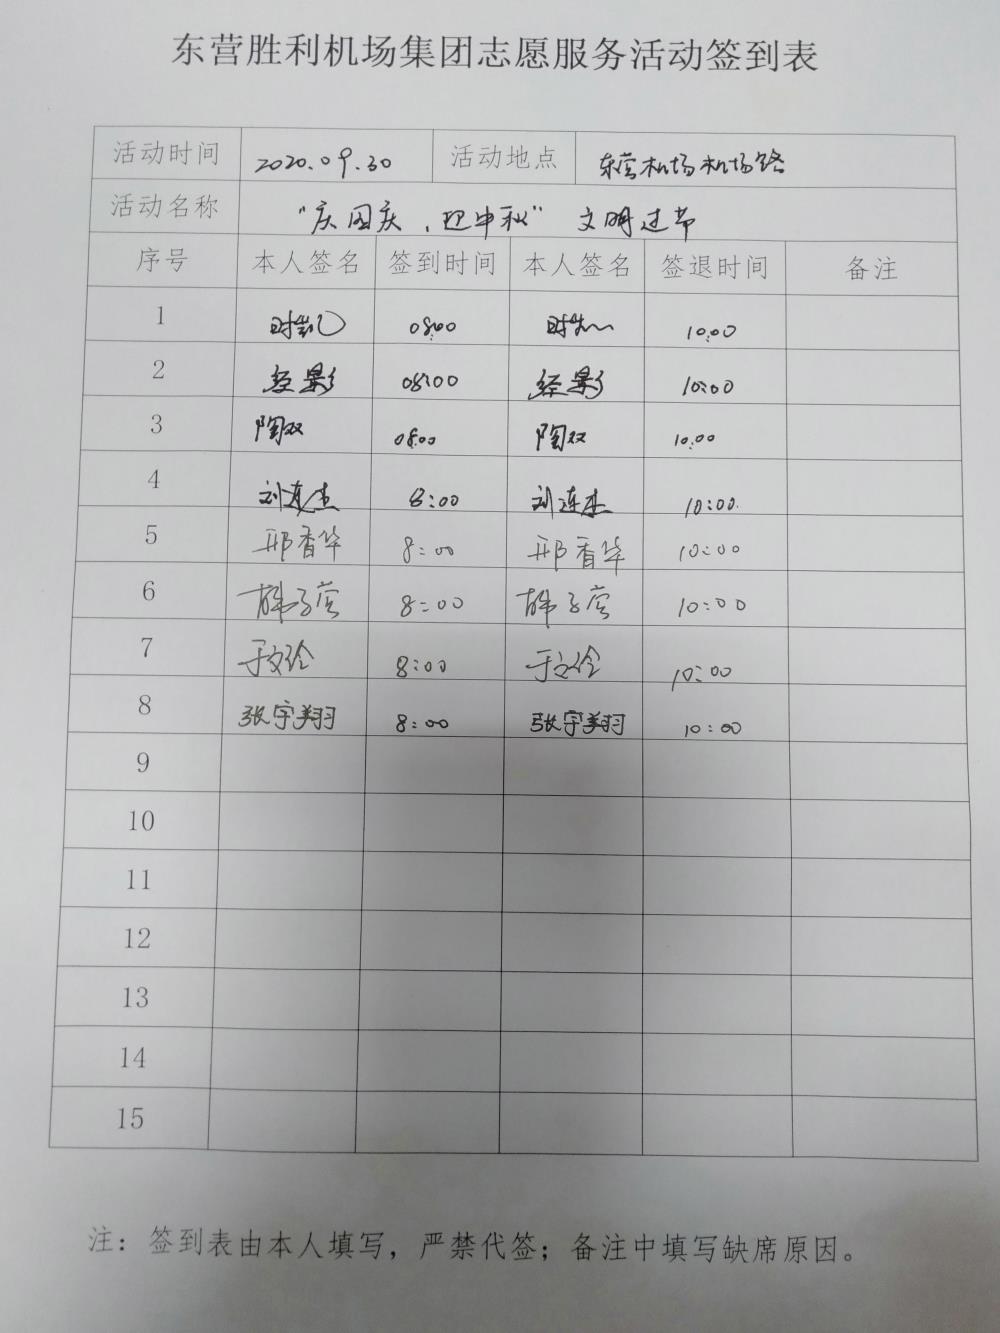 东营胜利机场集团志愿服务活动签到表
活动时间 2020.09.30 活动地点 东营机场机场路
活动名称 "庆国庆、迎中秋" 文明过节
序号 本人签名 签到时间 本人签名 签退时间 备注
1 08:00 10:00
2 经影 08:00 经影 10:00
3 陶双 08:00 陶双 10:00
4 刘连杰 8:00 刘连杰 10:00
5 邢香华 8:00 邢香华 10:00
6 8:00 10:00
7 8:00 10:00
8 张宇翔 8:00 张宇翔 10:00
9
10
11
12
13
14
15
注：签到表由本人填写，严禁代签；备注中填写缺席原因。